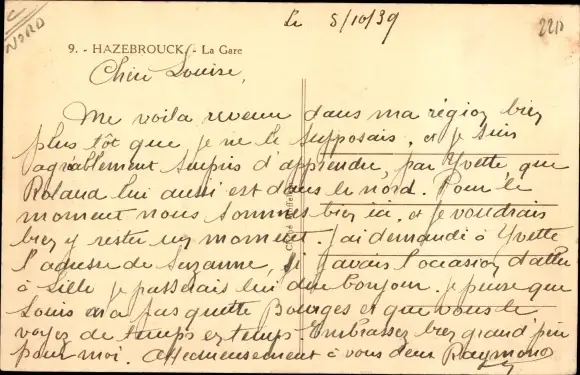 C
NORD
Le 5/10/39
221)
9. - HAZEBROUCK. - La Gare
Chère Louise,
Me voila revenu dans ma région bien
plus tôt que je ne le supposais, et je suis
agréablement surpris d'apprendre, par Yvette, que
Roland lui aussi est dans le nord. Pour le
moment nous sommes bien ici, et je voudrais
bien y rester un moment. J'ai demandé à Yvette
l'adresse de Suzanne, si j'avais l'occasion d'aller
à Lille je passerais lui dire bonjour. Je pense que
Louis n'a pas quitté Bourges et que vous le
voyez de temps en temps. Embrassez bien grand père
pour moi. Affectueusement à vous deux Raymond